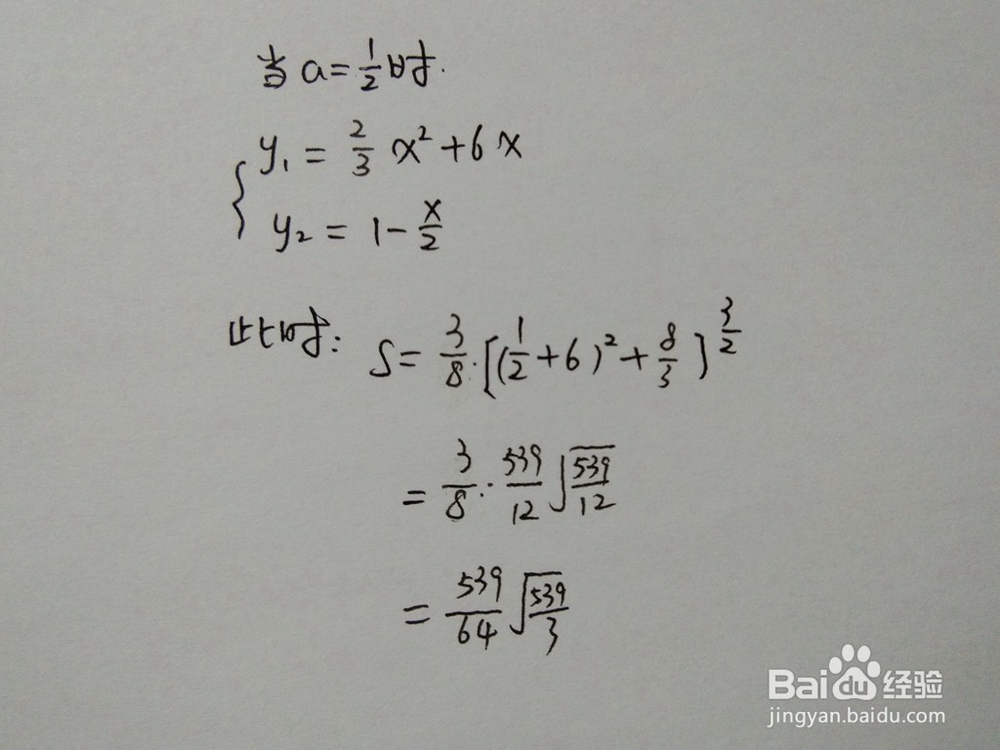 当 a=1/2时.
y₁ = 2/3 x² + 6x
y₂ = 1 - x/2
此时: S = 3/8·[(1/2+6)²+8/3]^(3/2)
= 3/8·· 539/12 √(539/12)
= 539/64 √(539/3)
Baidu经验
jingyan.baidu.com